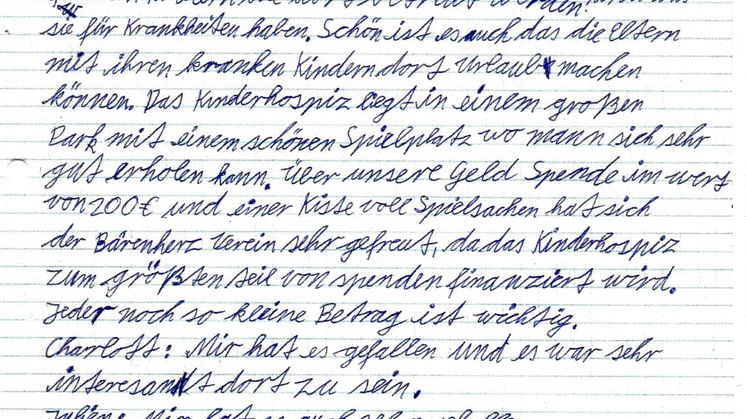 sie für Krankheiten haben. Schön ist es auch das die Eltern
mit ihren kranken Kindern dort Urlaub machen
können. Das Kinderhospiz liegt in einem großen
Park mit einem schönen Spielplatz wo mann sich sehr
gut erholen kann. Über unsere Geld Spende im wert
von 200€ und einer Kiste voll Spielsachen hat sich
der Bärenherz Verein sehr gefreut, da das Kinderhospiz
zum größten teil von spenden finanziert wird.
Jeder noch so kleine Betrag ist wichtig.
Charlott: Mir hat es gefallen und es war sehr
interesant dort zu sein.